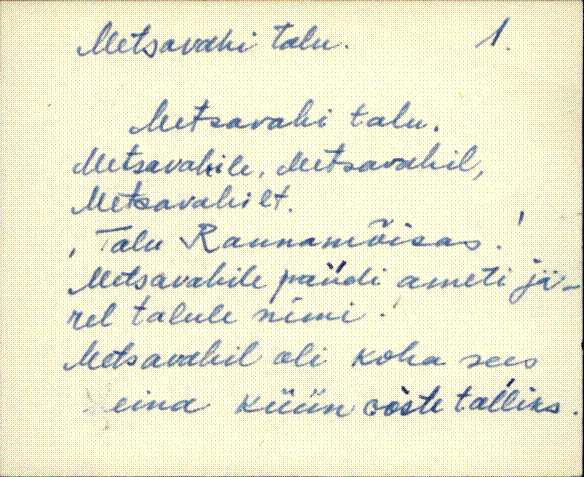 Metsavahi talu. 1.
Metsavahi talu.
Metsavahile, Metsavahil,
Metsavahilt.
, Talu Rannamõisas.'
Metsavahile pandi ameti jä-
rel talule nimi.'
Metsavahil oli koha sees
heina küün ööste talliks.